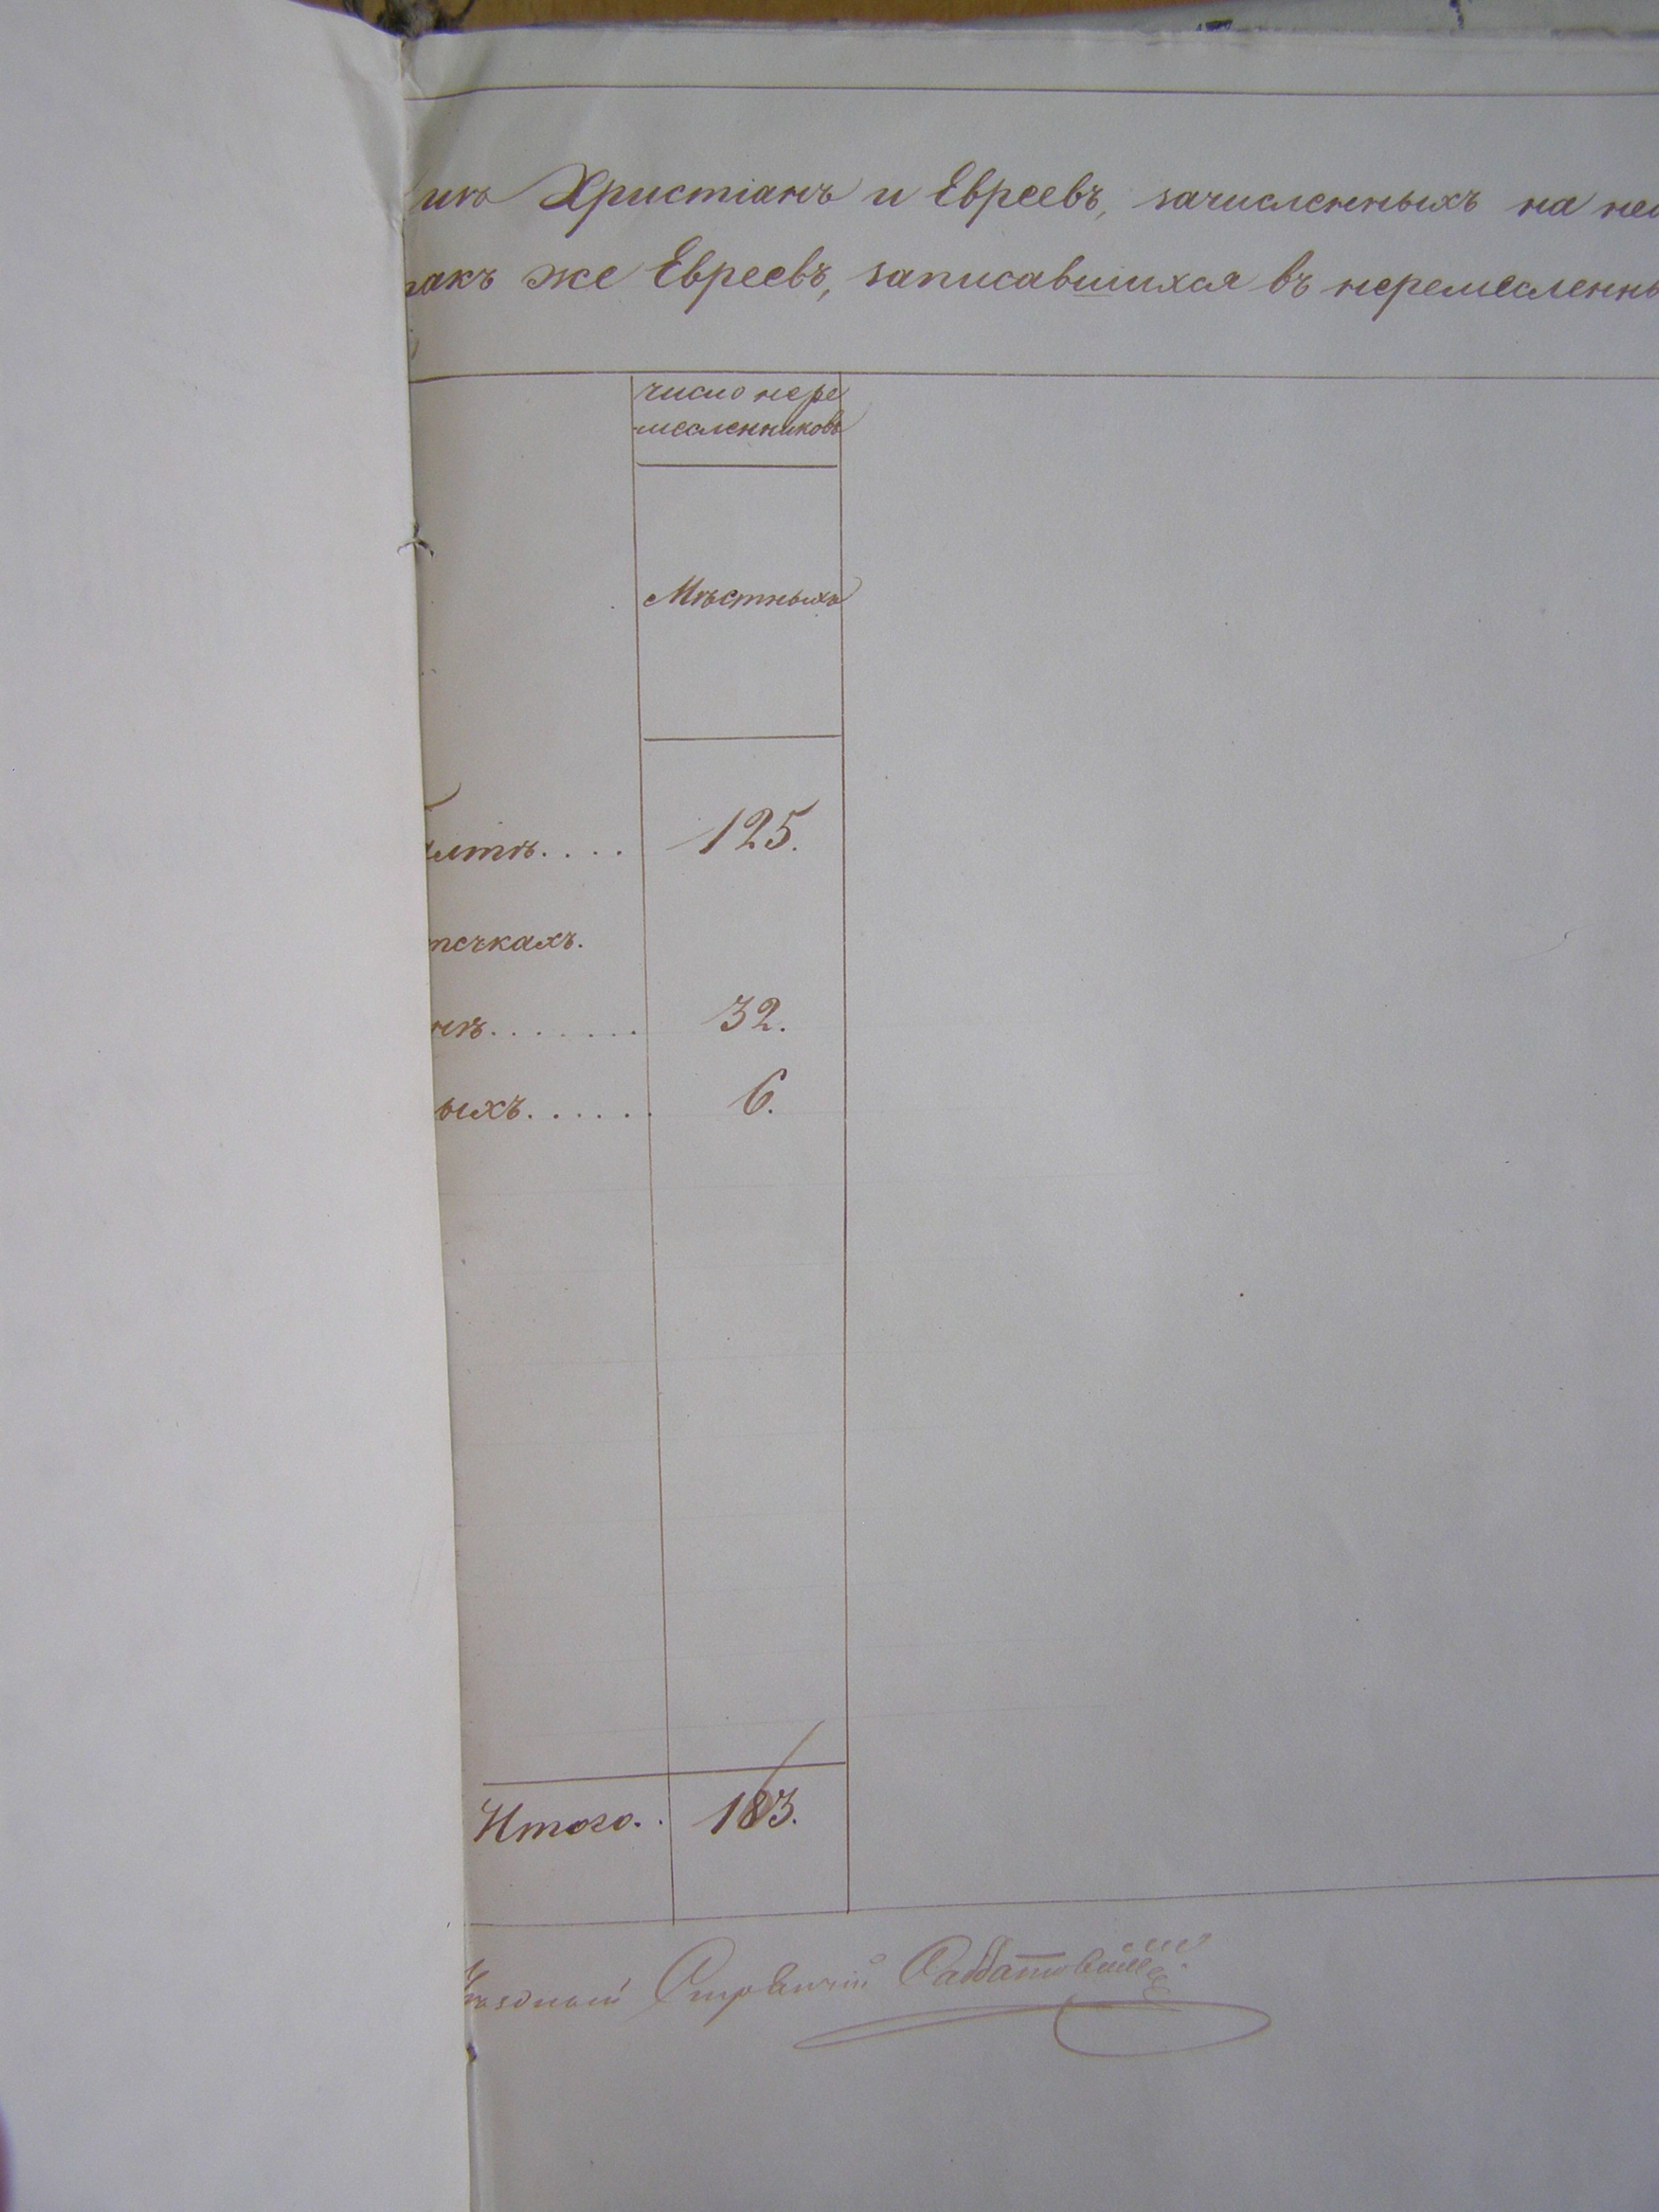 Христіанъ и Евреевъ, зачисленныхъ на
акъ же Евреевъ, записавшихся въ неремесленны
число нере
-месленниковъ
Мѣстныхъ
лтѣ.... 125.
течкахъ.
нѣ....... 32.
ыхъ...... 6.
Итого.. 183.
Уѣздный Стряпчій